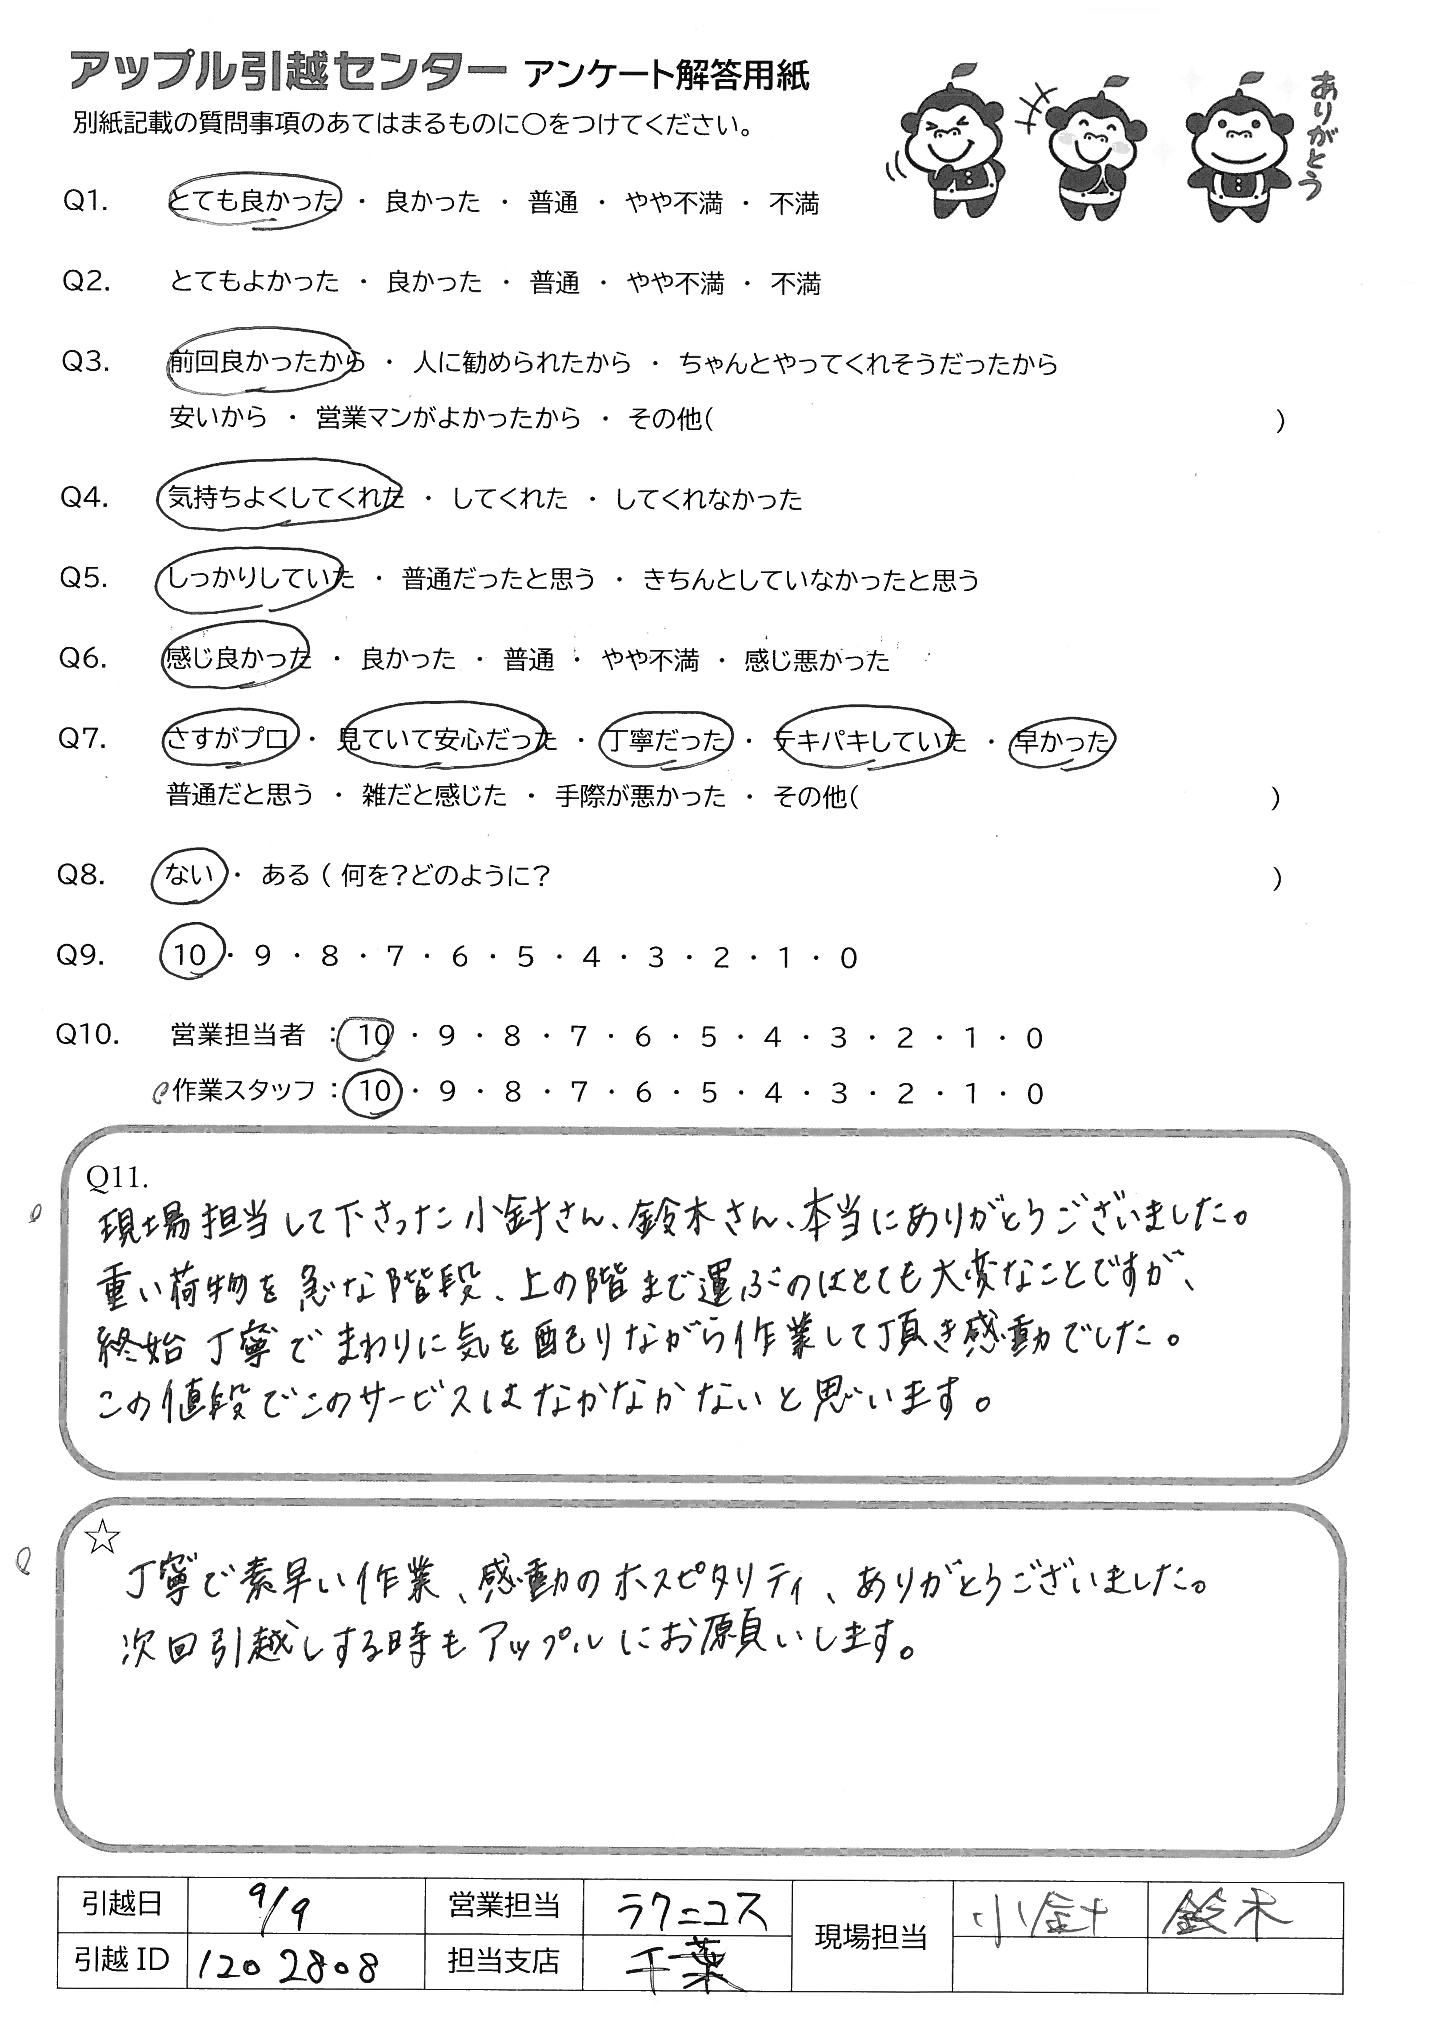 アップル引越センター アンケート解答用紙
別紙記載の質問事項のあてはまるものに〇をつけてください。
ありがとう
Q1. とても良かった ・ 良かった ・ 普通 ・ やや不満 ・ 不満
Q2. とてもよかった ・ 良かった ・ 普通 ・ やや不満 ・ 不満
Q3. 前回良かったから ・ 人に勧められたから ・ ちゃんとやってくれそうだったから
安いから ・ 営業マンがよかったから ・ その他( )
Q4. 気持ちよくしてくれた ・ してくれた ・ してくれなかった
Q5. しっかりしていた ・ 普通だったと思う ・ きちんとしていなかったと思う
Q6. 感じ良かった ・ 良かった ・ 普通 ・ やや不満 ・ 感じ悪かった
Q7. さすがプロ ・ 見ていて安心だった ・ 丁寧だった ・ テキパキしていた ・ 早かった
普通だと思う ・ 雑だと感じた ・ 手際が悪かった ・ その他( )
Q8. ない ・ ある ( 何を?どのように? )
Q9. 10 ・ 9 ・ 8 ・ 7 ・ 6 ・ 5 ・ 4 ・ 3 ・ 2 ・ 1 ・ 0
Q10. 営業担当者 : 10 ・ 9 ・ 8 ・ 7 ・ 6 ・ 5 ・ 4 ・ 3 ・ 2 ・ 1 ・ 0
作業スタッフ : 10 ・ 9 ・ 8 ・ 7 ・ 6 ・ 5 ・ 4 ・ 3 ・ 2 ・ 1 ・ 0
Q11.
現場担当して下さった小針さん、鈴木さん、本当にありがとうございました。
重い荷物を急な階段、上の階まで運ぶのはとても大変なことですが、
終始丁寧でまわりに気を配りながら作業して頂き感動でした。
この値段でこのサービスはなかなかないと思います。
☆
丁寧で素早い作業、感動のホスピタリティ、ありがとうございました。
次回引越しする時もアップルにお願いします。
引越日 9/9 営業担当 ラクニコス 現場担当 小針 鈴木
引越ID 1202808 担当支店 千葉